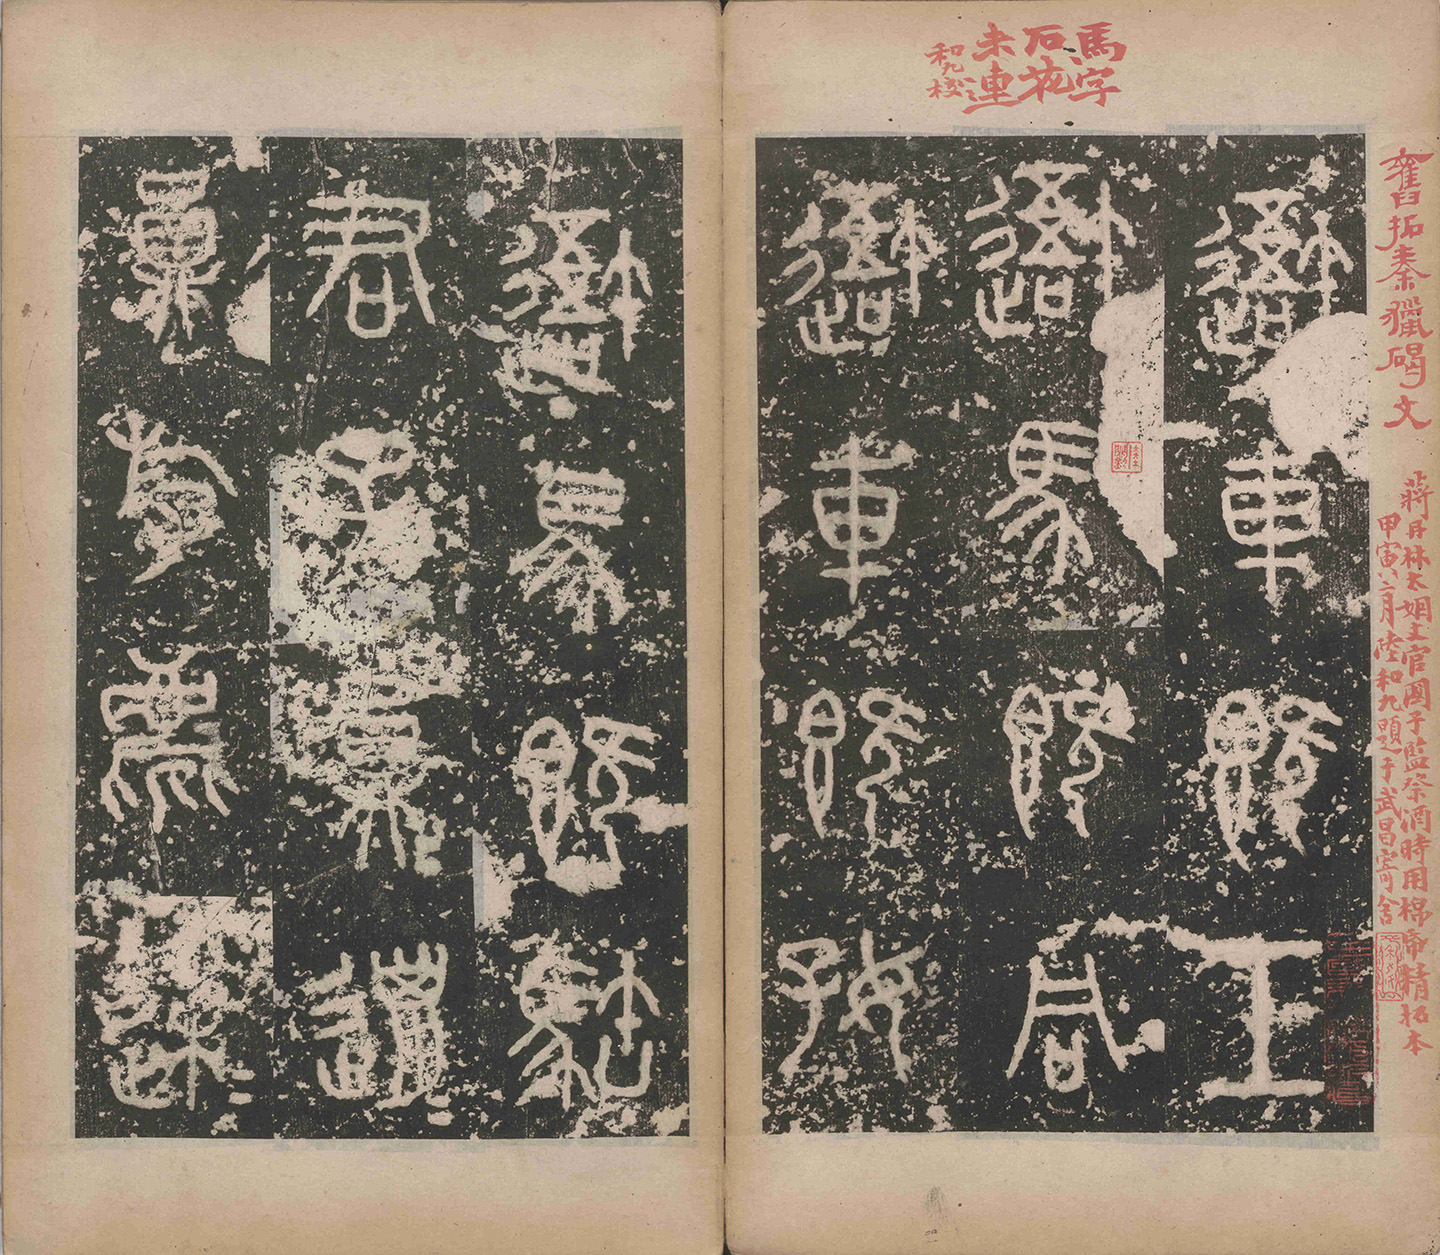 舊拓秦獵碣文
蔣丹林太姻丈官國子監祭酒時用棉帋精拓本
甲寅二月陸和九題于武昌寄舍
馬字
石花
未連
和九校
避車既工
避馬既同
避車既好
避馬既𩣡
君子員邋
員斿麀速